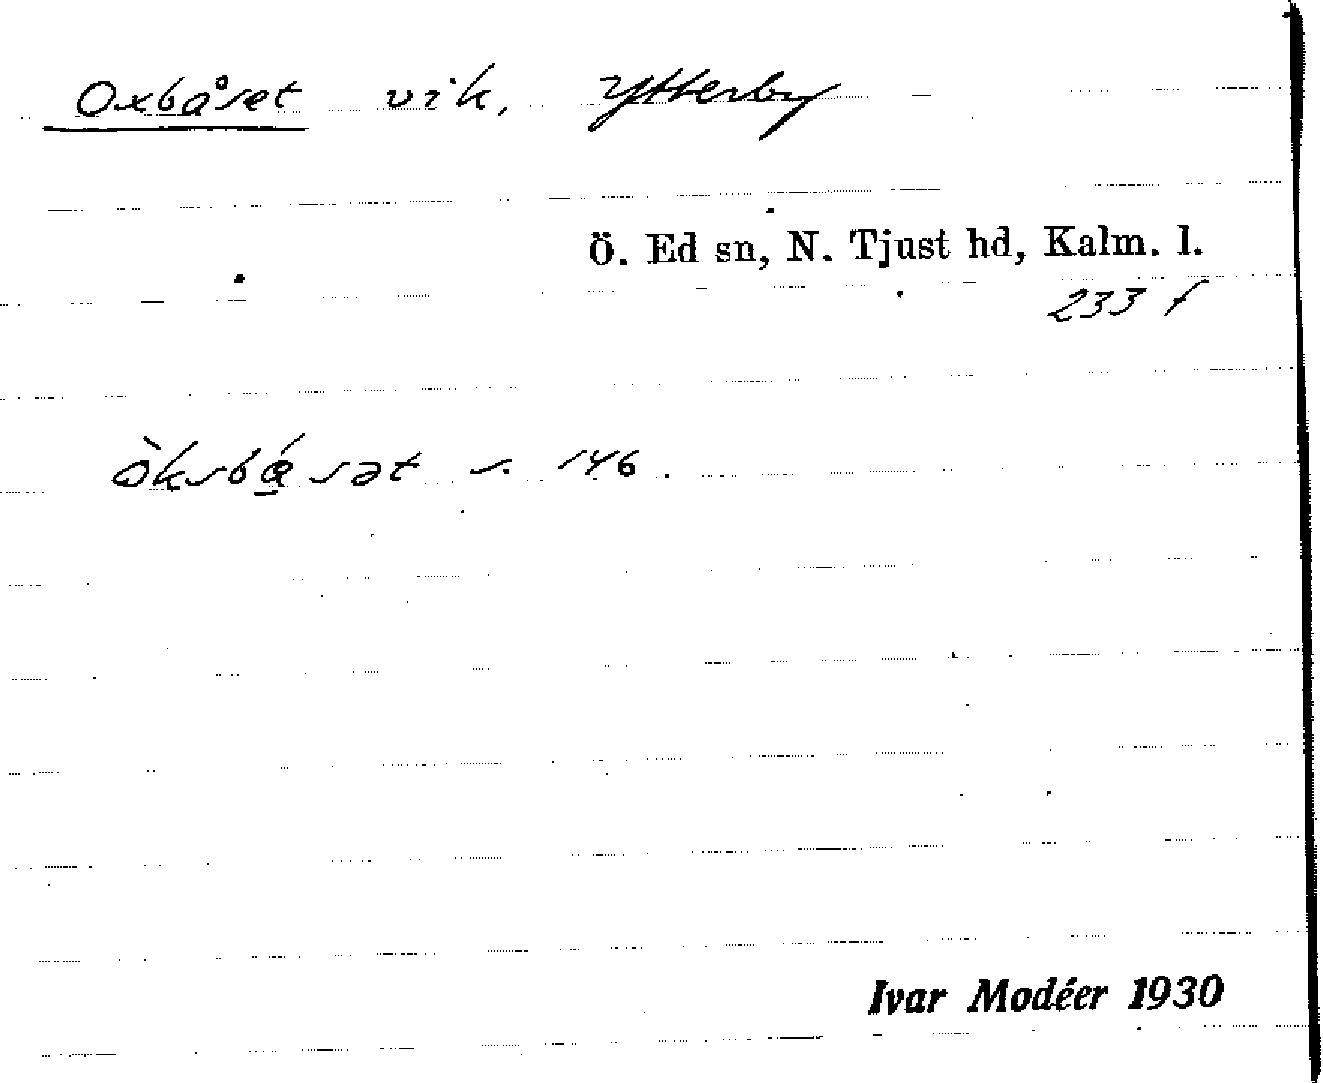 Oxbåset vik, Ytterby
Ö. Ed sn, N. Tjust hd, Kalm. l.
233 f
s. 146.
Ivar Modéer 1930